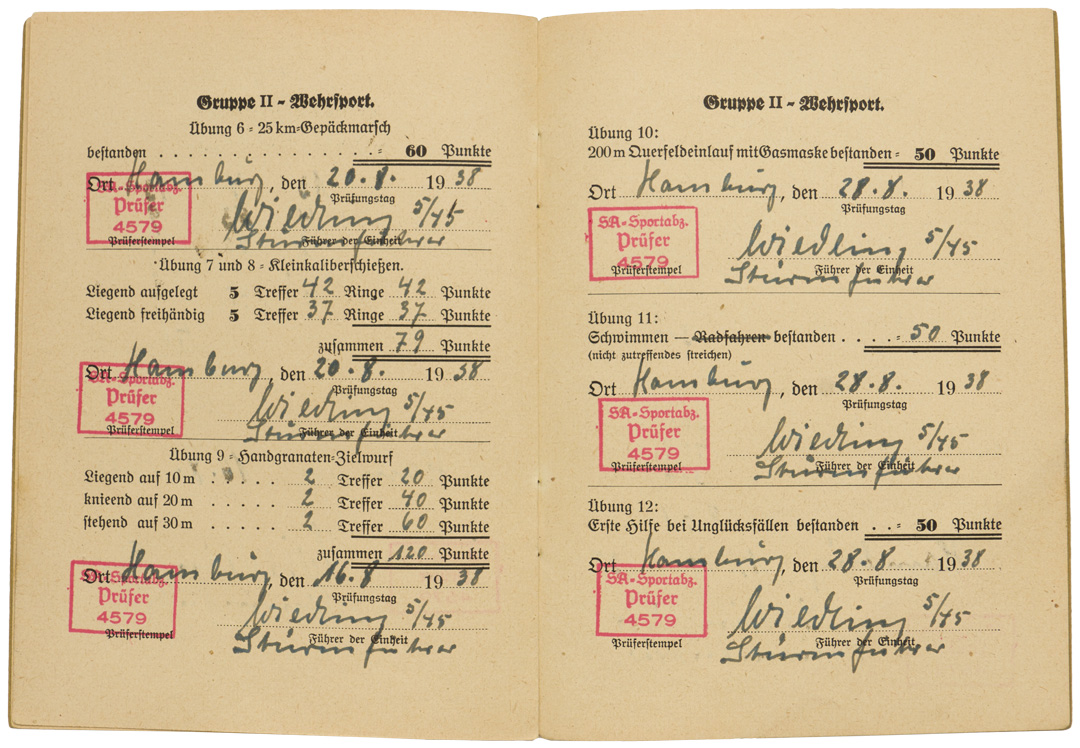 Gruppe II - Wehrsport.
Übung 6 - 25 km-Gepäckmarsch
bestanden . . . . . . . . . . . . . . . = 60 Punkte
Ort Hamburg, den 20.8. 1938
Prüfungstag
SA-Sportabz.
Prüfer
4579
Prüferstempel
Wiedling 5/45
Führer der Einheit
Sturmführer
Übung 7 und 8 - Kleinkaliberschießen.
Liegend aufgelegt 5 Treffer 42 Ringe 42 Punkte
Liegend freihändig 5 Treffer 37 Ringe 37 Punkte
zusammen 79 Punkte
Ort Hamburg, den 20.8. 1938
Prüfungstag
SA-Sportabz.
Prüfer
4579
Prüferstempel
Wiedling 5/45
Führer der Einheit
Sturmführer
Übung 9 - Handgranaten-Zielwurf
Liegend auf 10 m . . . . . 2 Treffer 20 Punkte
knieend auf 20 m . . . . . 2 Treffer 40 Punkte
stehend auf 30 m . . . . . 2 Treffer 60 Punkte
zusammen 120 Punkte
Ort Hamburg, den 16.8 1938
Prüfungstag
SA-Sportabz.
Prüfer
4579
Prüferstempel
Wiedling 5/45
Führer der Einheit
Sturmführer
Gruppe II - Wehrsport.
Übung 10:
200 m Querfeldeinlauf mit Gasmaske bestanden = 50 Punkte
Ort Hamburg, den 28.8. 1938
Prüfungstag
SA-Sportabz.
Prüfer
4579
Prüferstempel
Wiedling 5/45
Führer der Einheit
Sturmführer
Übung 11:
Schwimmen — Radfahren bestanden . . . . = 50 Punkte
(nicht zutreffendes streichen)
Ort Hamburg, den 28.8. 1938
Prüfungstag
SA-Sportabz.
Prüfer
4579
Prüferstempel
Wiedling 5/45
Führer der Einheit
Sturmführer
Übung 12:
Erste Hilfe bei Unglücksfällen bestanden . . = 50 Punkte
Ort Hamburg, den 28.8 1938
Prüfungstag
SA-Sportabz.
Prüfer
4579
Prüferstempel
Wiedling 5/45
Führer der Einheit
Sturmführer